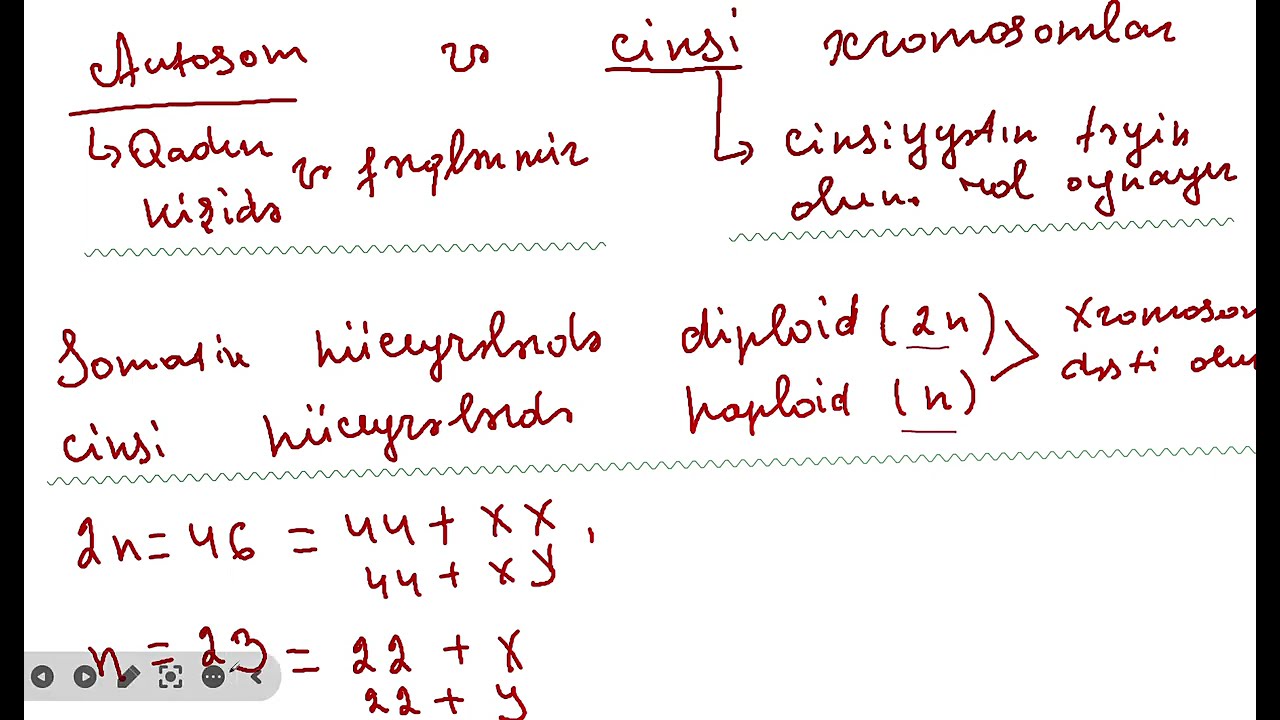 Autosom və cinsi xromosomlar
↳ Qadın və kişidə fərqlənmir
↳ cinsiyyətin təyin olun. rol oynayır
Somatik hüceyrələrdə diploid (2n)
cinsi hüceyrələrdə haploid (n)
xromosom dəsti olu
2n = 46 = 44 + XX,
44 + XY
n = 23 = 22 + X
22 + Y